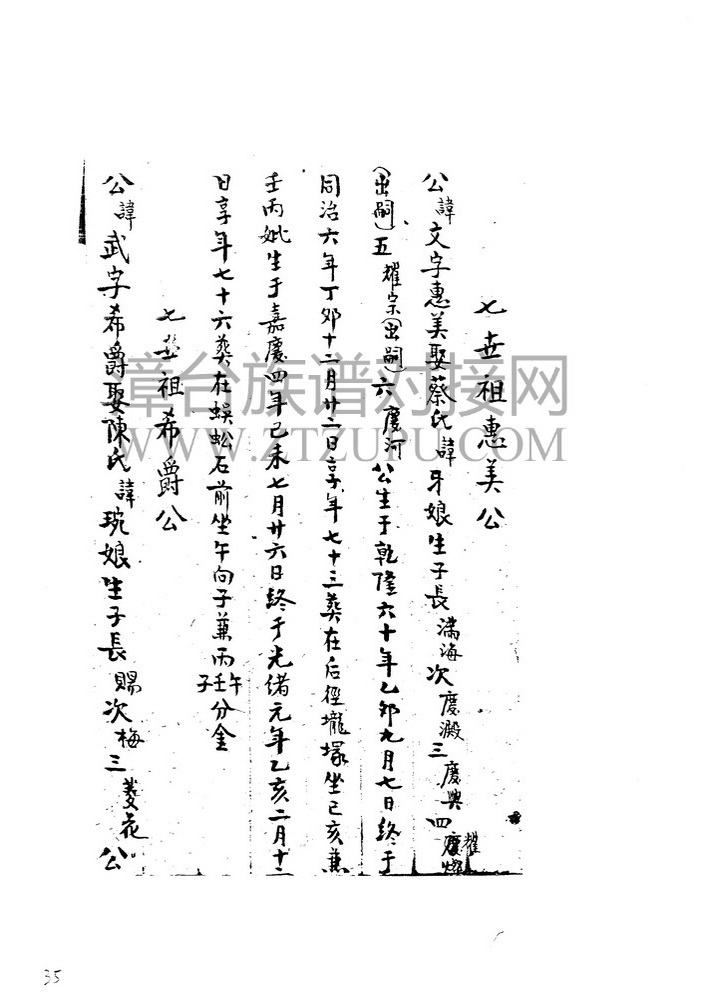 七世祖惠美公
公諱文字惠美娶蔡氏諱牙娘生子長滿海次慶澱三慶興四慶燦耀
(出嗣)五耀宗(出嗣)六慶河公生于乾隆六十年乙卯九月七日終于
同治六年丁卯十二月廿二日享年七十三葬在后徑壠塚坐巳亥兼
壬丙妣生于嘉慶四年己未七月廿六日終于光緒元年乙亥二月十二
日享年七十六葬在蜈蚣石前坐午向子兼丙午子壬分金
七世祖希爵公
公諱武字希爵娶陳氏諱琬娘生子長賜次梅三菱花公
章台族谱对接网
WWW.ZTZUPU.COM
35